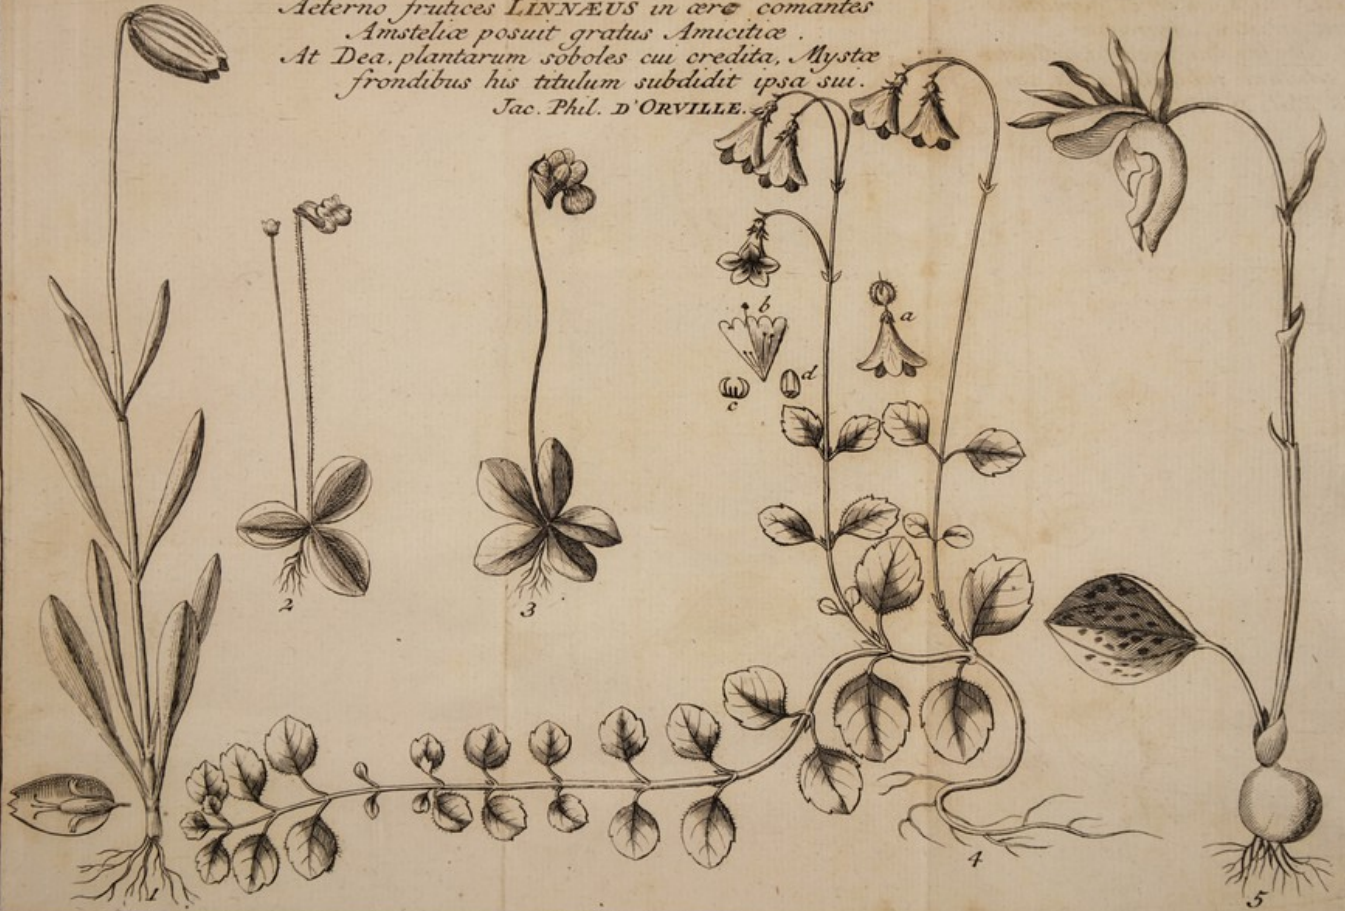 Aeterno frutices LINNÆUS in ære comantes
Amsteliæ posuit gratus Amicitiæ.
At Dea, plantarum soboles cui credita, Mystæ
frondibus his titulum subdidit ipsa sui.
Jac. Phil. D'ORVILLE.
b
a
d
c
2
3
4
1
5